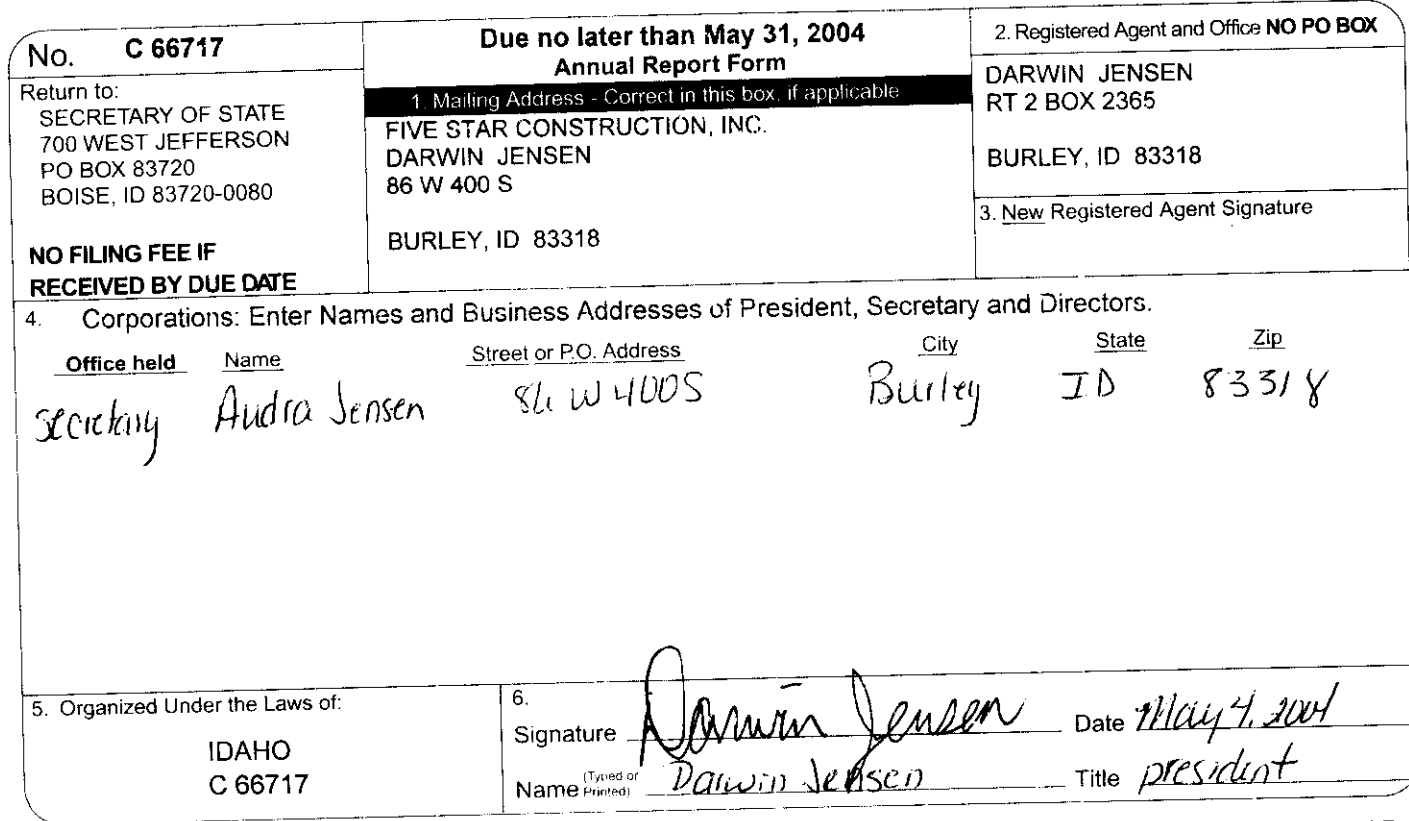 No. C 66717
Return to:
SECRETARY OF STATE
700 WEST JEFFERSON
PO BOX 83720
BOISE, ID 83720-0080
NO FILING FEE IF
RECEIVED BY DUE DATE
Due no later than May 31, 2004
Annual Report Form
1. Mailing Address - Correct in this box, if applicable
FIVE STAR CONSTRUCTION, INC.
DARWIN JENSEN
86 W 400 S
BURLEY, ID 83318
2. Registered Agent and Office NO PO BOX
DARWIN JENSEN
RT 2 BOX 2365
BURLEY, ID 83318
3. New Registered Agent Signature
4. Corporations: Enter Names and Business Addresses of President, Secretary and Directors.
Office held Name Street or P.O. Address City State Zip
secretary Audra Jensen 86 W 400 S Burley ID 83318
5. Organized Under the Laws of:
IDAHO
C 66717
6.
Signature Darwin Jensen Date May 4, 2004
Name (Typed or Printed) Darwin Jensen Title president